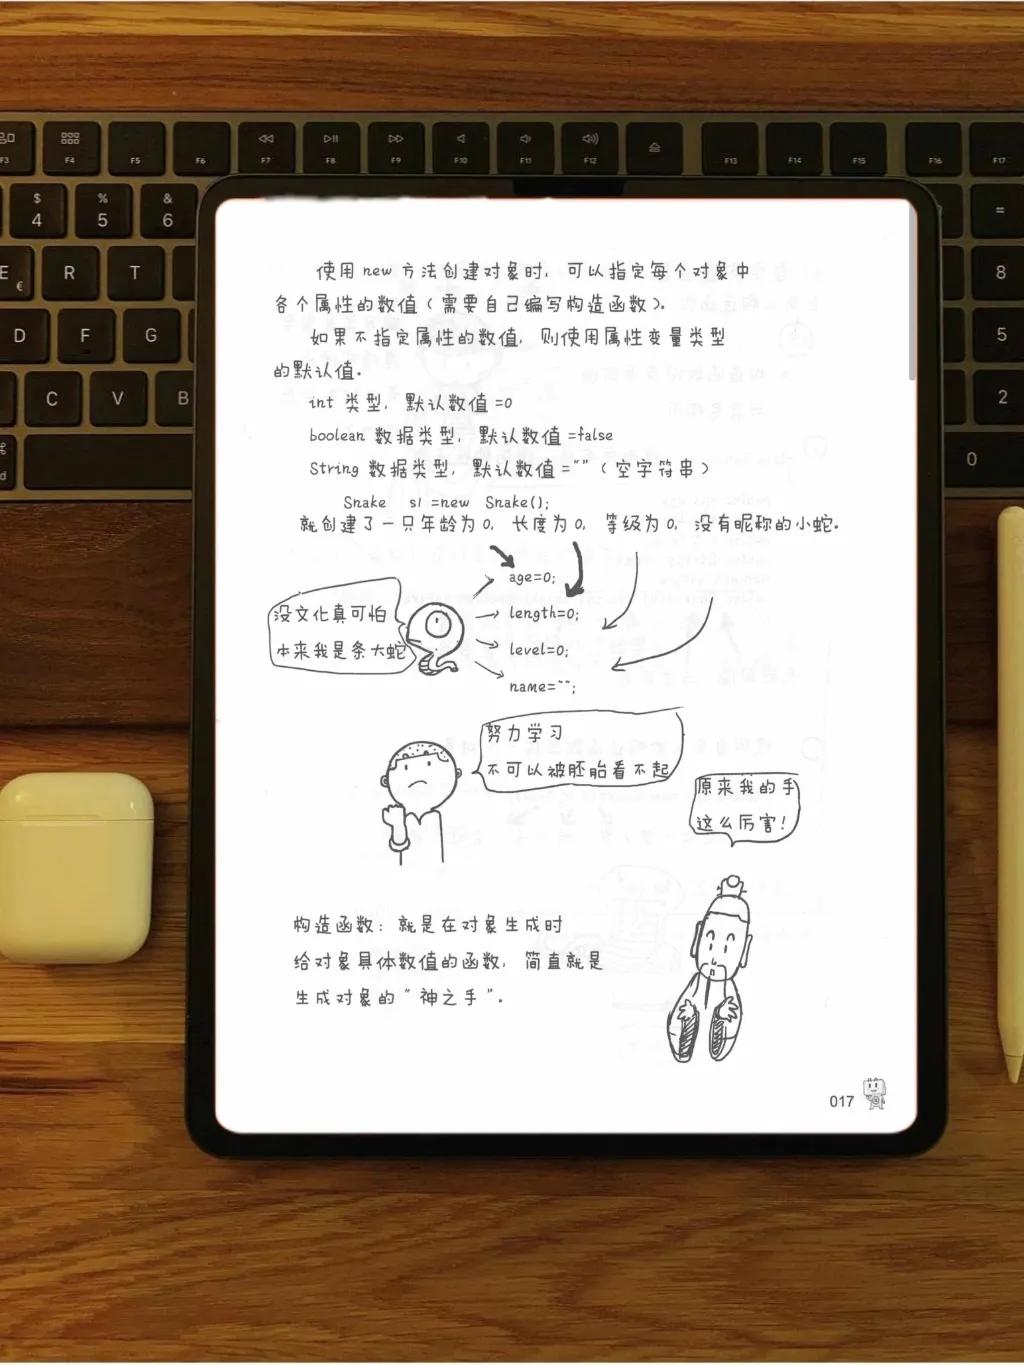 F3
F4
F5
F6
F7
F8
F9
F10
F11
F12
F13
F14
F15
F16
F17
$
4
%
5
&
6
=
E
€
R
T
8
D
F
G
5
C
V
B
2
0
使用 new 方法创建对象时，可以指定每个对象中
各个属性的数值（需要自己编写构造函数）。
如果不指定属性的数值，则使用属性变量类型
的默认值。
int 类型，默认数值 =0
boolean 数据类型，默认数值 =false
String 数据类型，默认数值 =""（空字符串）
Snake s1 =new Snake();
就创建了一只年龄为 0，长度为 0，等级为 0，没有昵称的小蛇。
age=0;
length=0;
level=0;
name="";
没文化真可怕
本来我是条大蛇
努力学习
不可以被胚胎看不起
原来我的手
这么厉害！
构造函数：就是在对象生成时
给对象具体数值的函数，简直就是
生成对象的“神之手”。
017